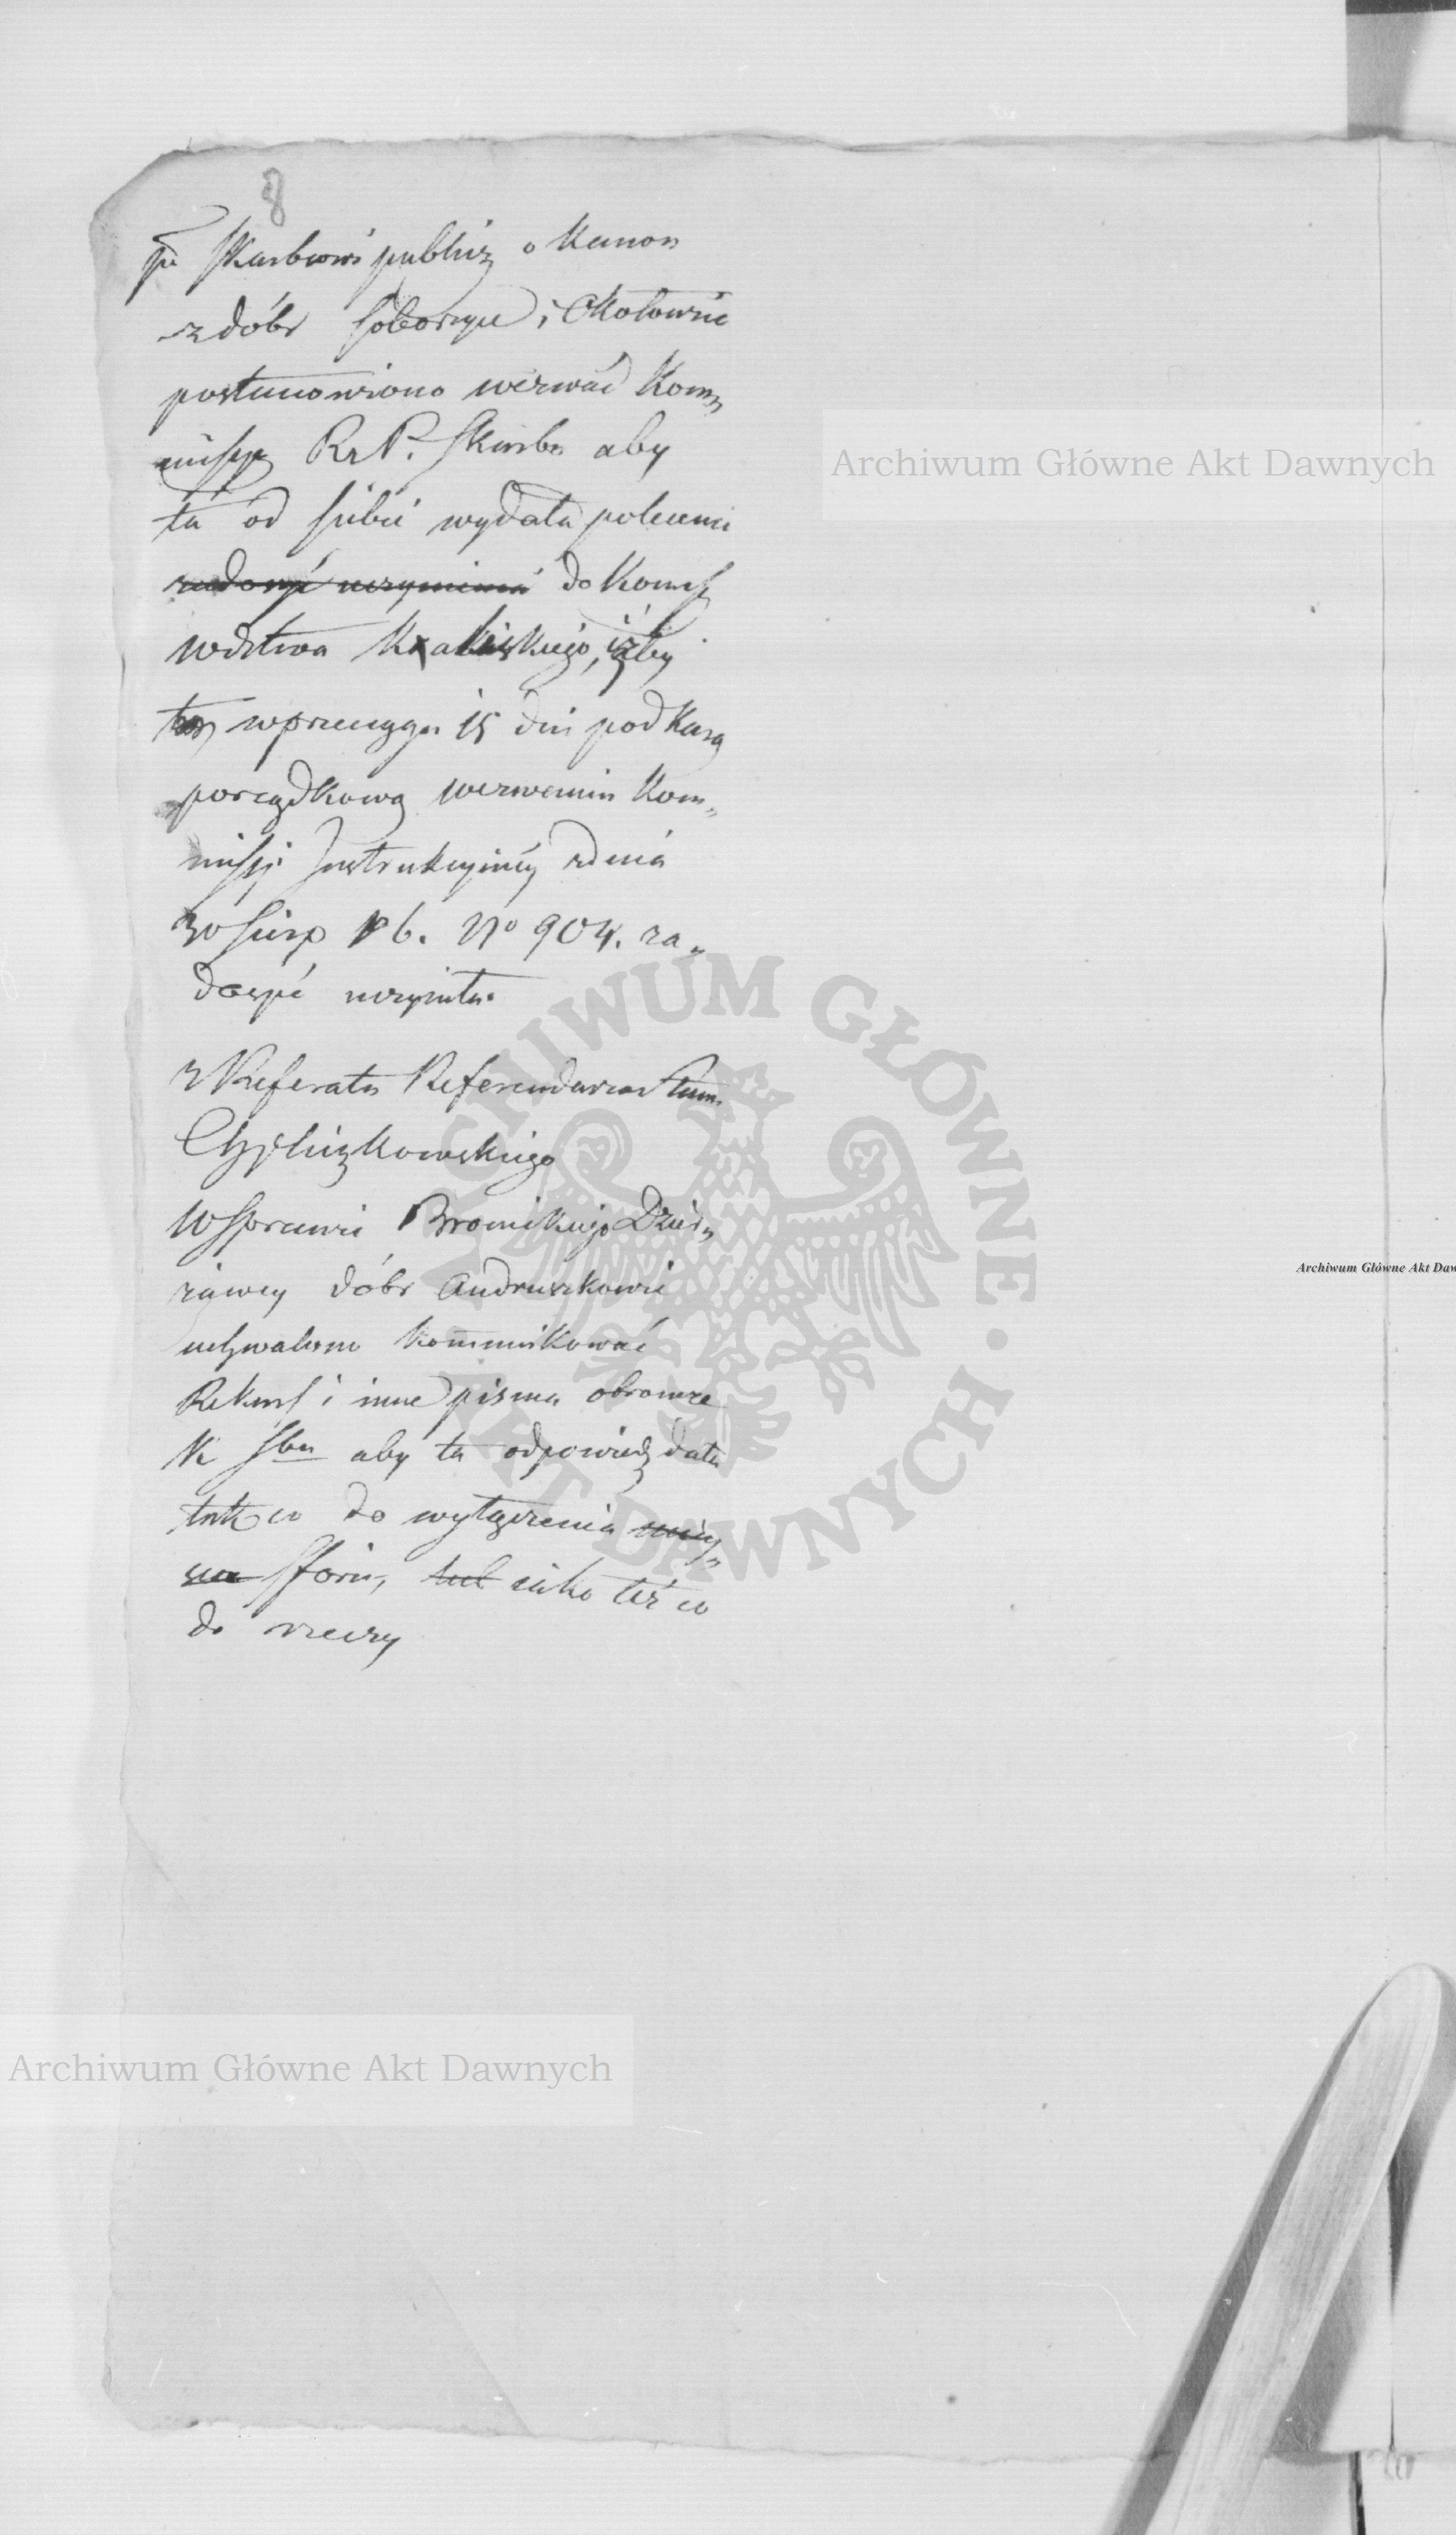 8
po Skarbowi publicz o Kanon
z dóbr Soboczyce i Okołowic
postanowiono wezwać Kom„
missyą R. P. Skarbu aby
ta od siebie wydała polecenie
zadosyć uczynienia do Komss
wdztwa Kaliskiego, iżby
ta w przeciągu 15 dni pod karą
porządkową wezwaniu Kom„
missji Instrukcyinéy z dnia
30 Sierp 16. No 904. za„
dosyć uczyniła.
z Referatu Referendarza Stanu
W Sprawie Bronickiego Dzier„
żawcy dóbr Andruszkowic
uchwalono kommunikować
Rekurs i inne pisma obronne
K Sbu aby ta odpowiedź dała
tak co do wyłączenia
fforu, lub iako też co
do rzeczy
Archiwum Główne Akt Dawnych
Archiwum Główne Akt Daw
Archiwum Główne Akt Dawnych
ARCHIWUM GŁÓWNE • AKT DAWNYCH